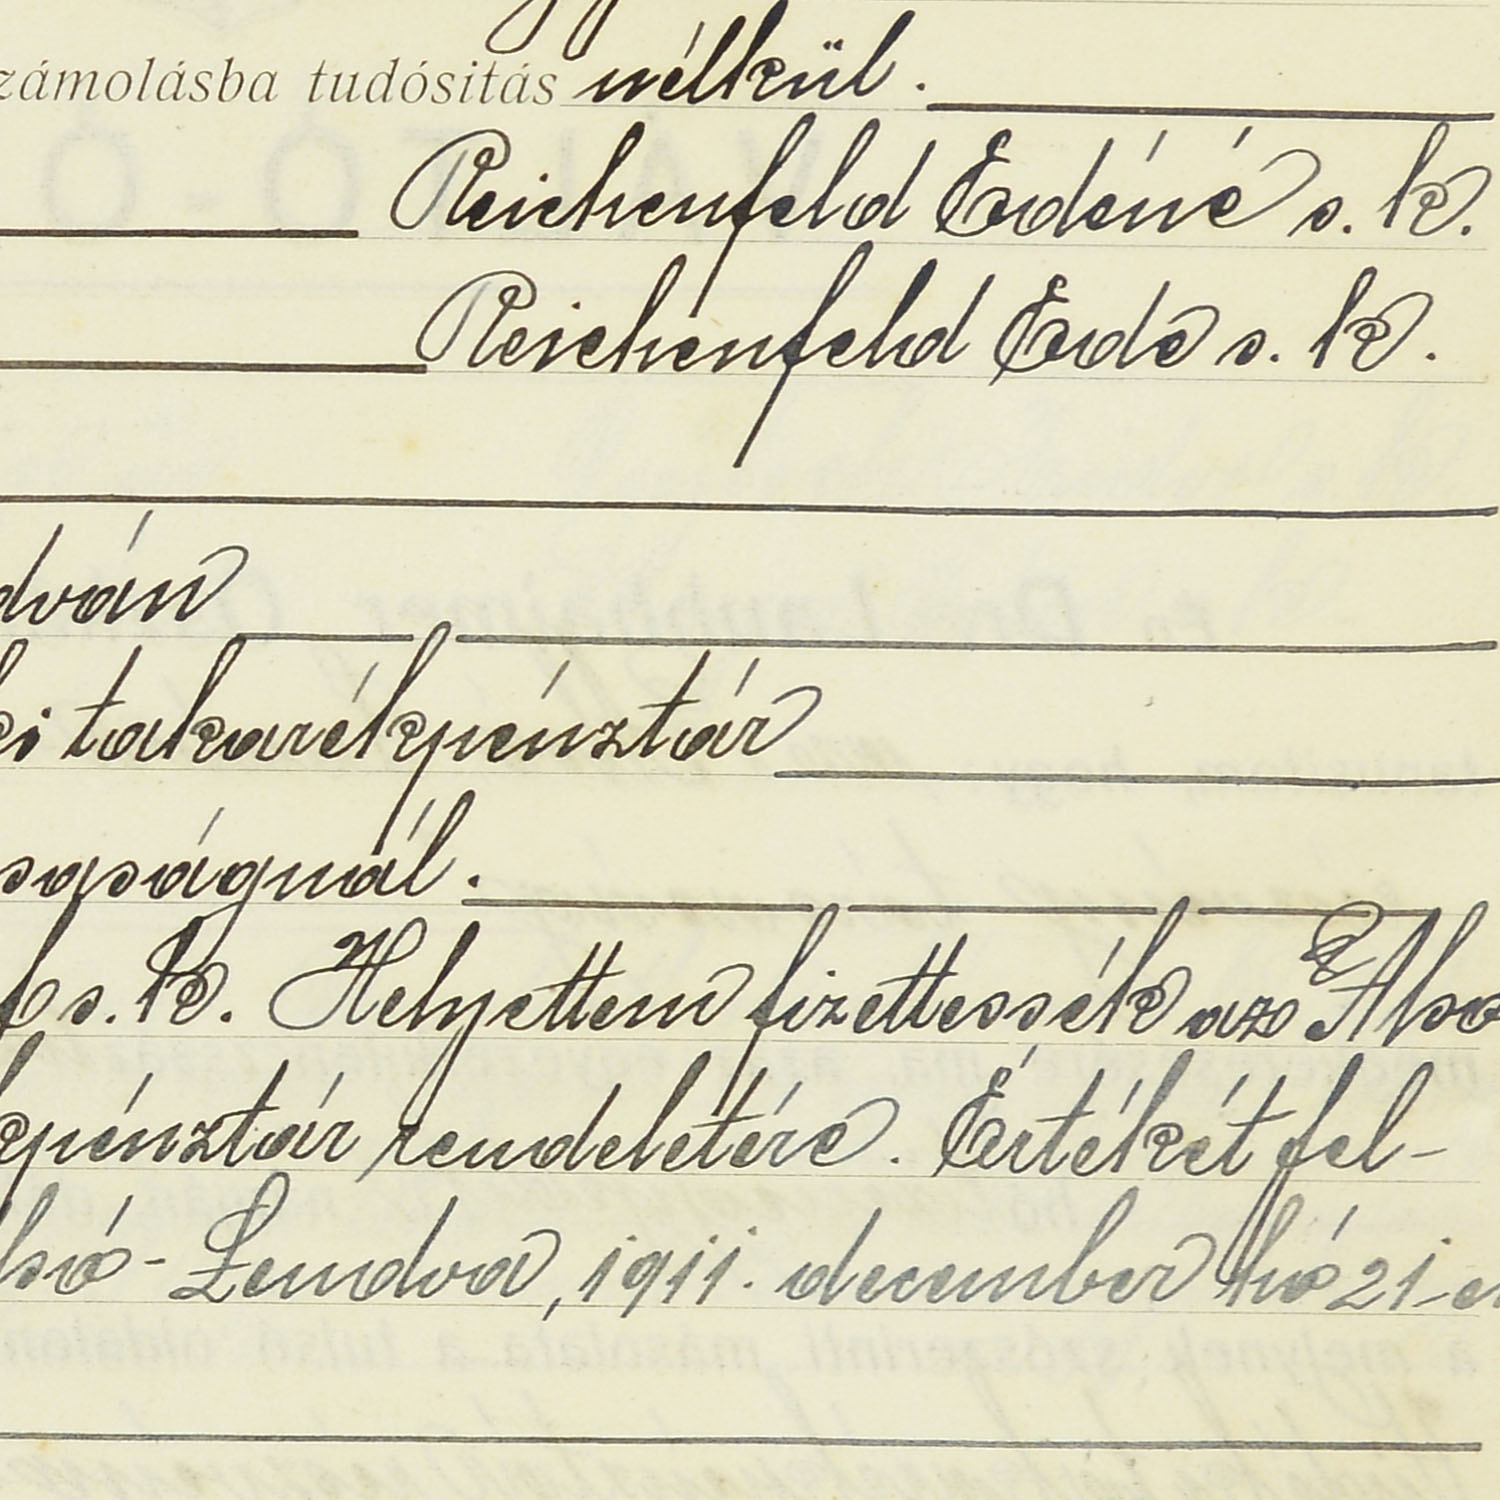 zámolásba tudósitás nélkül.
Reichenfeld Edéné s. k.
Reichenfeld Ede s. k.
dván
ki takarékpénztár
saságnál.
f s. k. Helyettem fizettessék az Alsó
kpénztár rendeletére. Értékét fel-
lsó-Lendva, 1911. december hó 21-e